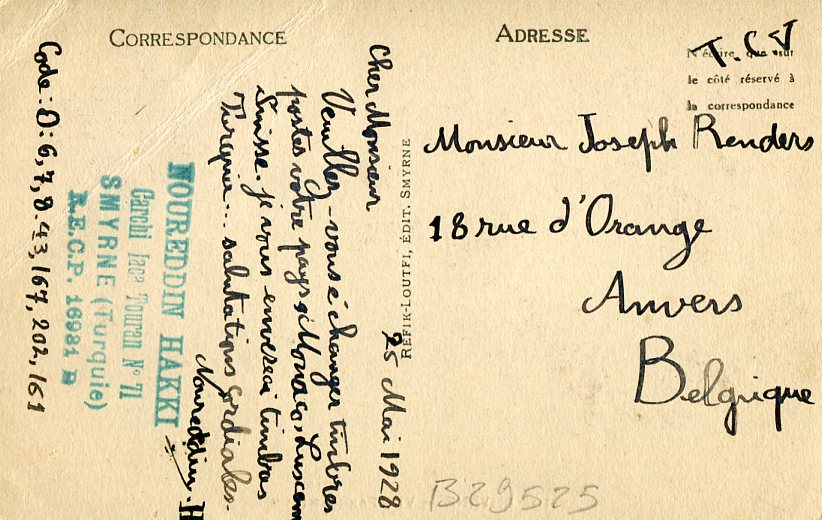 CORRESPONDANCE
ADRESSE
T.C.V
N'écrire que sur
le côté réservé à
la correspondance
Monsieur Joseph Renders
18 rue d'Orange
Anvers
Belgique
B29525
REFIK-LOUTFI, ÉDIT. SMYRNE
25 Mai 1928
Cher Monsieur
Veuillez-vous échanger timbres
postes votre pays, Monaco,
Suisse. je vous enverai timbres
Turquie... salutations cordiales.
Noureddin. H
NOUREDDIN HAKKI
Carchi Touran No 71
SMYRNE (Turquie)
R.E.C.P. 16981 B
Code: D: 6, 7, 8. 43, 167, 202, 161